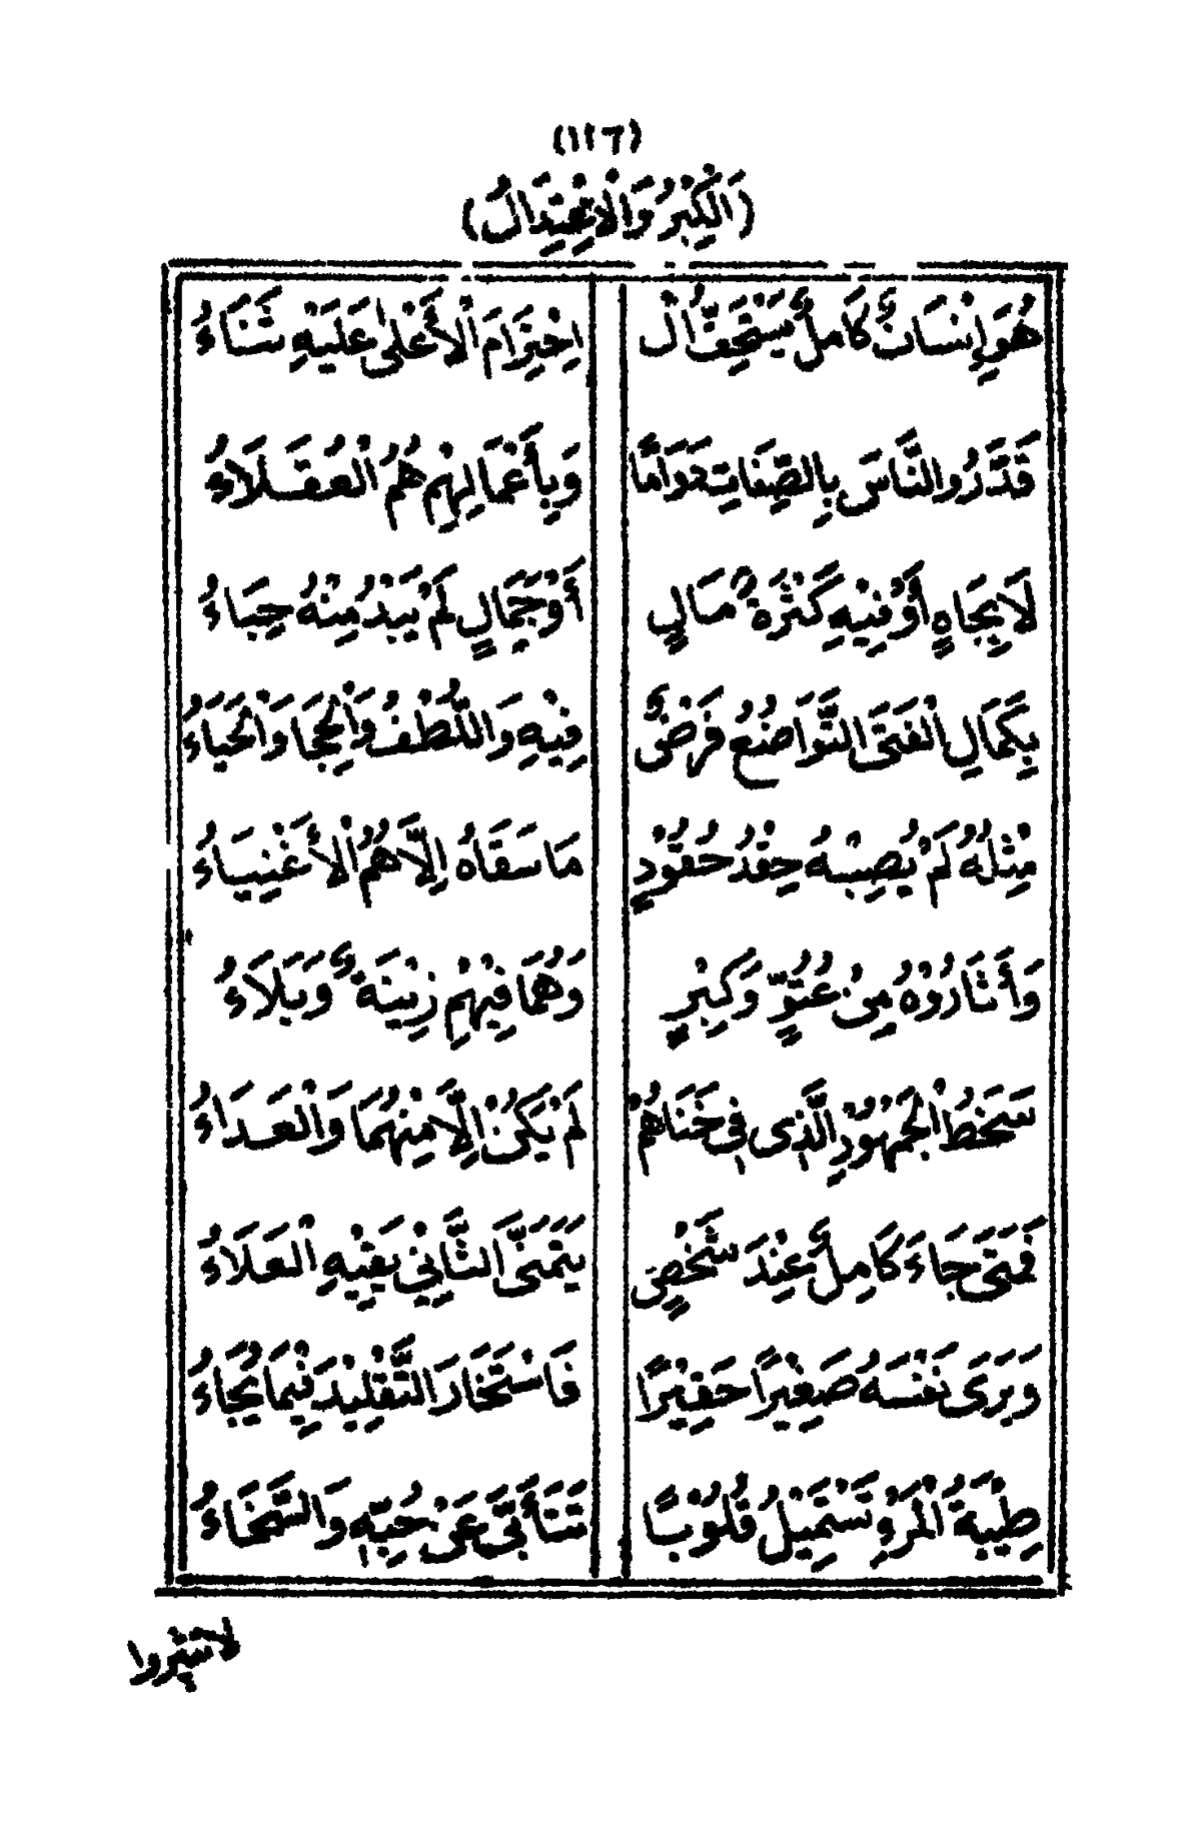 (١٢٦)
(اَلْكِبْرُ وَالْاِعْتِدَالُ)
هُوَ اِنْسَانٌ كَامِلٌ يَسْتَحِقُّ الْ اِحْتِرَامَ الْأَعْلٰى عَلَيْهِ ثَنَاءُ
قَدَّرُوا النَّاسَ بِالصِّفَاتِ دَوَامًا وَبِأَعْمَالِهِمْ هُمُ الْعُقَلَاءُ
لَا بِجَاهٍ أَوْ فِيْهِ كَثْرَةُ مَالٍ أَوْ جَمَالٍ لَمْ يَبْدُ مِنْهُ حِبَاءُ
بِكَمَالِ الْفَتَى التَّوَاضُعُ فَرْضٌ فِيْهِ وَاللُّطْفُ وَالْحِجَا وَالْحَيَاءُ
مِثْلُهُ لَمْ يُصِبْهُ حِقْدُ حُقُوْدٍ مَا سَقَاهُ اِلَّا هُمُ الْأَغْنِيَاءُ
وَأَثَارُوْهُ مِنْ عُتُوٍّ وَكِبْرٍ وَهُمَا فِيْهِمِ زِيْنَةٌ وَبَلَاءُ
سَخَطُ الْجُمْهُوْدِ الَّذِى فِى خَنَاهُمْ لَمْ يَكُنْ اِلَّا مِنْهُمَا وَالْعَدَاءُ
فَمَتَى جَاءَ كَامِلٌ عِنْدَ شَخْصٍ يَتَمَنَّى الثَّانِيْ يَقِيْهِ الْعَلَاءُ
وَيَرَى نَفْسَهُ صَغِيْرًا حَقِيْرًا فَاسْتَخَارَ التَّقْلِيْدَ فِيْمَا يُجَاءُ
طِيْبَةُ الْمَرْءِ تَسْتَمِيْلُ قُلُوْبًا تَتَأَبَّى عَنْ حُبِّهِ وَالسَّخَاءُ